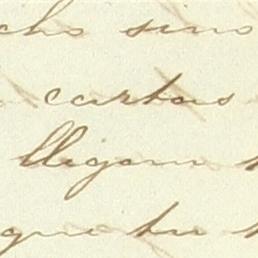 cho sino
cartas
llegan
que tu